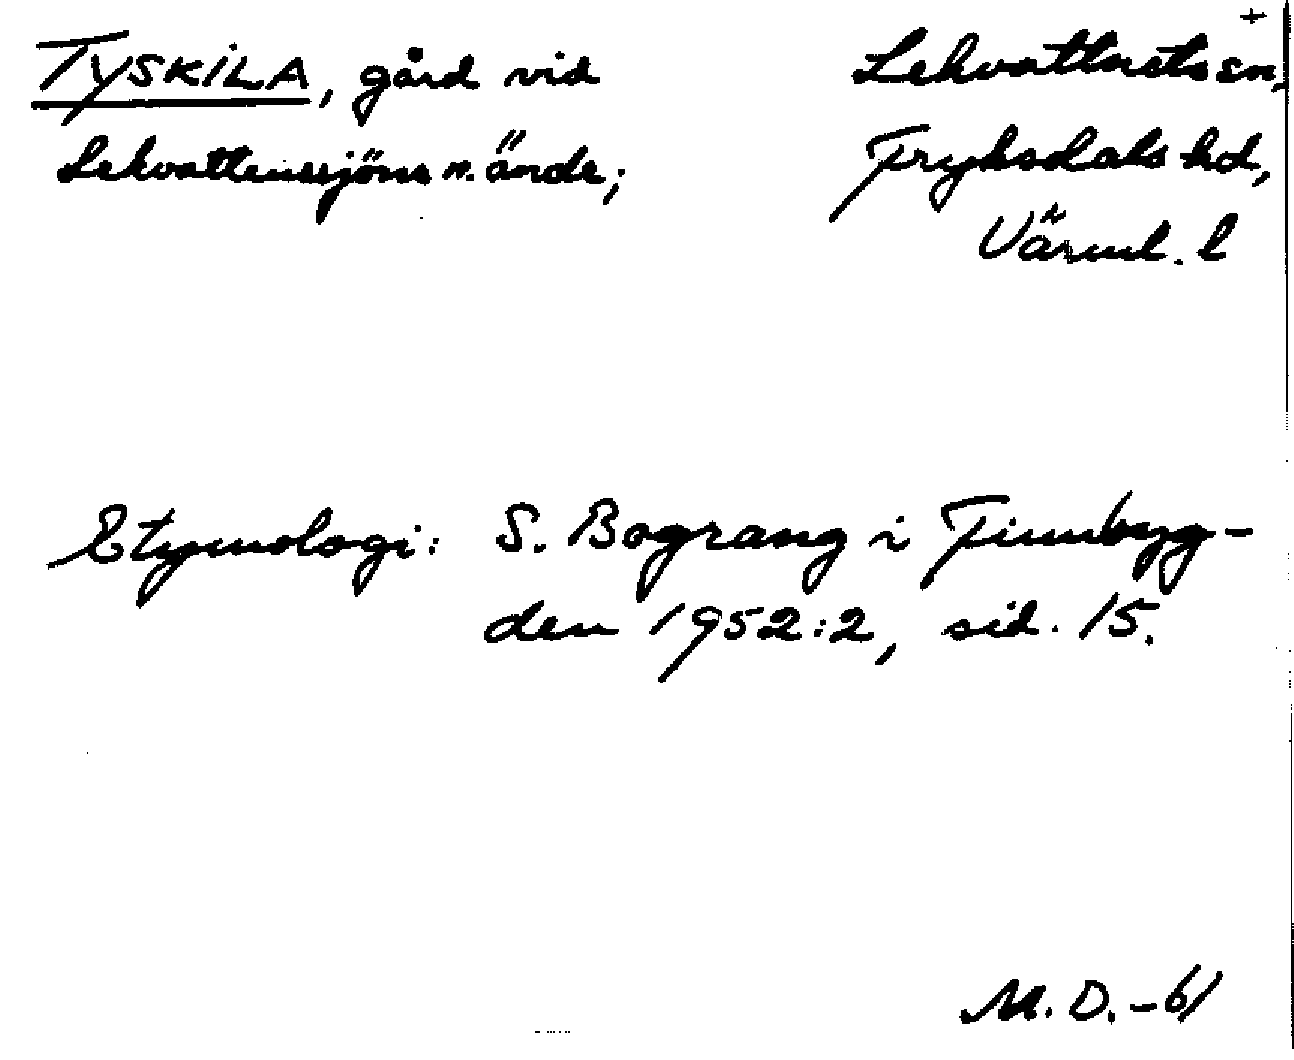 +
TYSKILA, gård vid
Lekvattenssjöns n. ände;
Lekvattnets sn,
Fryksdals hd,
Värml. l
Etymologi: S. Bograng i Finnbyg-
den 1952:2, sid. 15.
M. D. -61